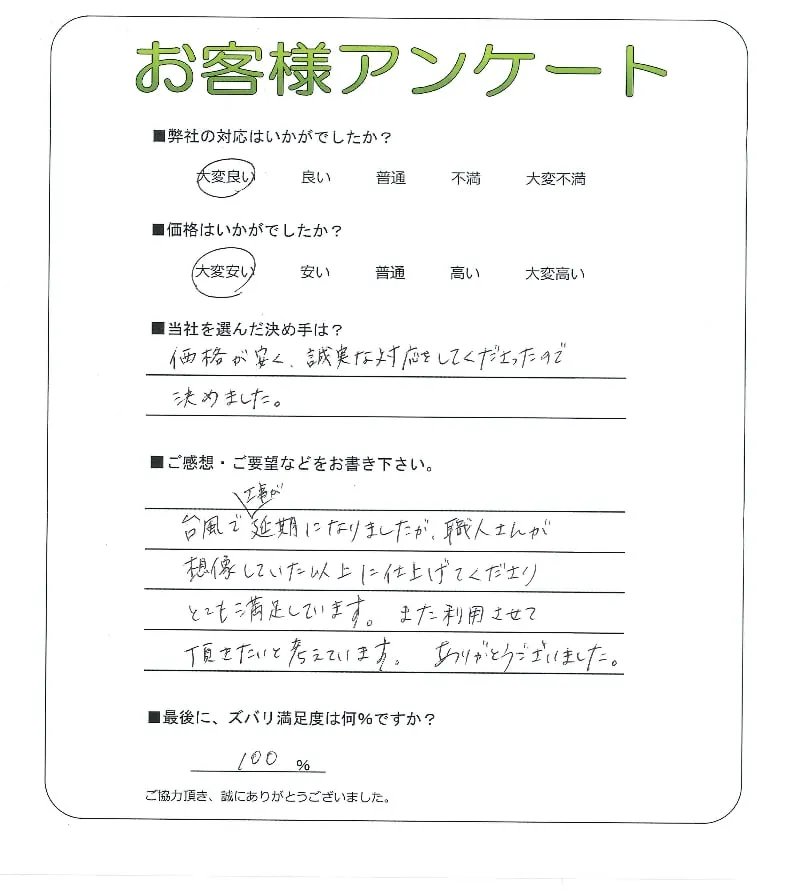 お客様アンケート
■弊社の対応はいかがでしたか?
大変良い 良い 普通 不満 大変不満
■価格はいかがでしたか?
大変安い 安い 普通 高い 大変高い
■当社を選んだ決め手は?
価格が安く、誠実な対応をしてくださったので
決めました。
■ご感想・ご要望などをお書き下さい。
工事が
台風で延期になりましたが、職人さんが
想像していた以上に仕上げてくださり
とても満足しています。 また利用させて
頂きたいと考えています。 ありがとうございました。
■最後に、ズバリ満足度は何%ですか?
100 %
ご協力頂き、誠にありがとうございました。